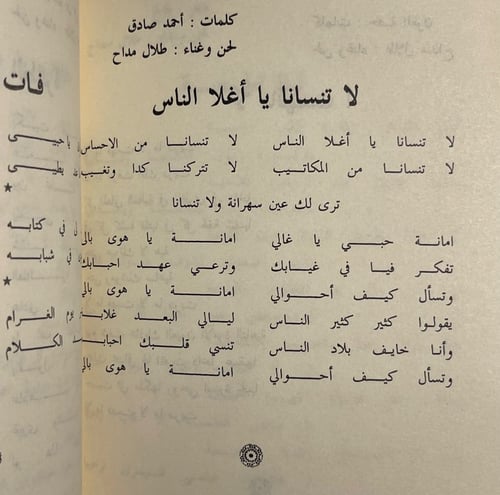 كلمات : أحمد صادق
لحن وغناء : طلال مداح
لا تنسانا يا أغلا الناس
لا تنسانا يا أغلا الناس لا تنسانا من الاحساس
لا تنسانا من المكاتيب لا تتركنا كدا وتغيب
ترى لك عين سهرانة ولا تنسانا
امانة حبي يا غالي امانة يا هوى بالي
تفكر فيا في غيابك وترعي عهد احبابك
وتسأل كيف أحوالي امانة يا هوى بالي
يقولوا كثير كثير الناس ليالي البعد غلابة
وأنا خايف بلاد الناس تنسي قلبك احبابه
وتسأل كيف أحوالي امانة يا هوى بالي
فات
في كتابه
في شبابه
الغرام
الكلام